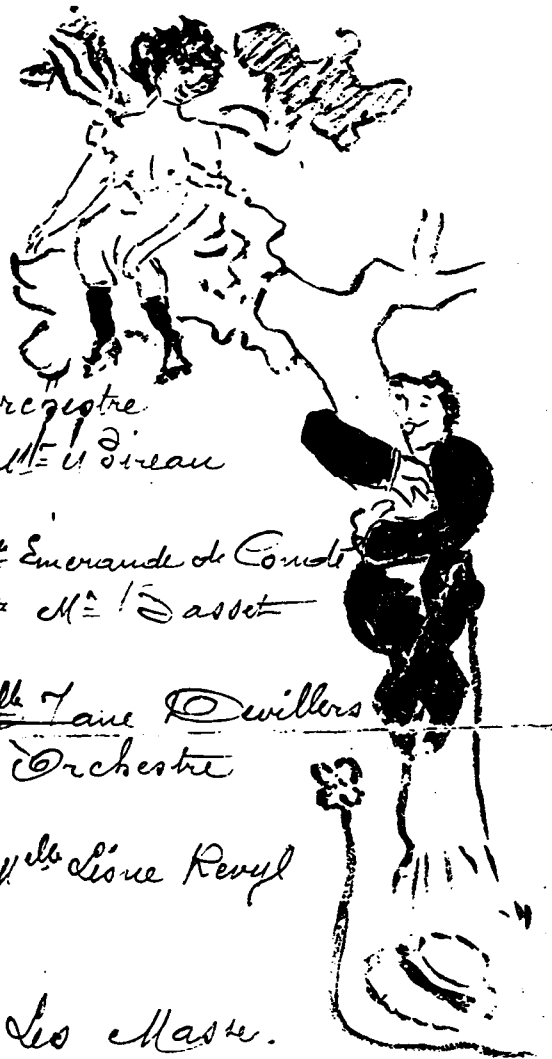 rchestre
Mᵉ Bireau
Emerande de Condé
Mᵉ Basset
elle Jane Devillers
Orchestre
elle Lisne Revyl
Les Masse.